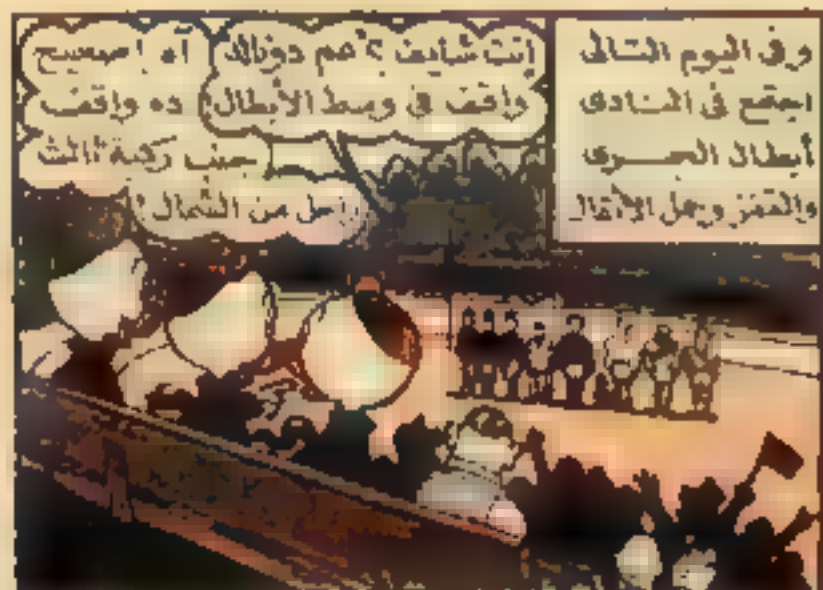 وفى اليوم التالى
اجتمع فى النادى
أبطال الجرى
والقفز وحمل الأثقال
إنت شايف عم دونالد
واقف فى وسط الأبطال
آه! صحيح
ده واقف
جنب ركبة تالت
راجل من الشمال!